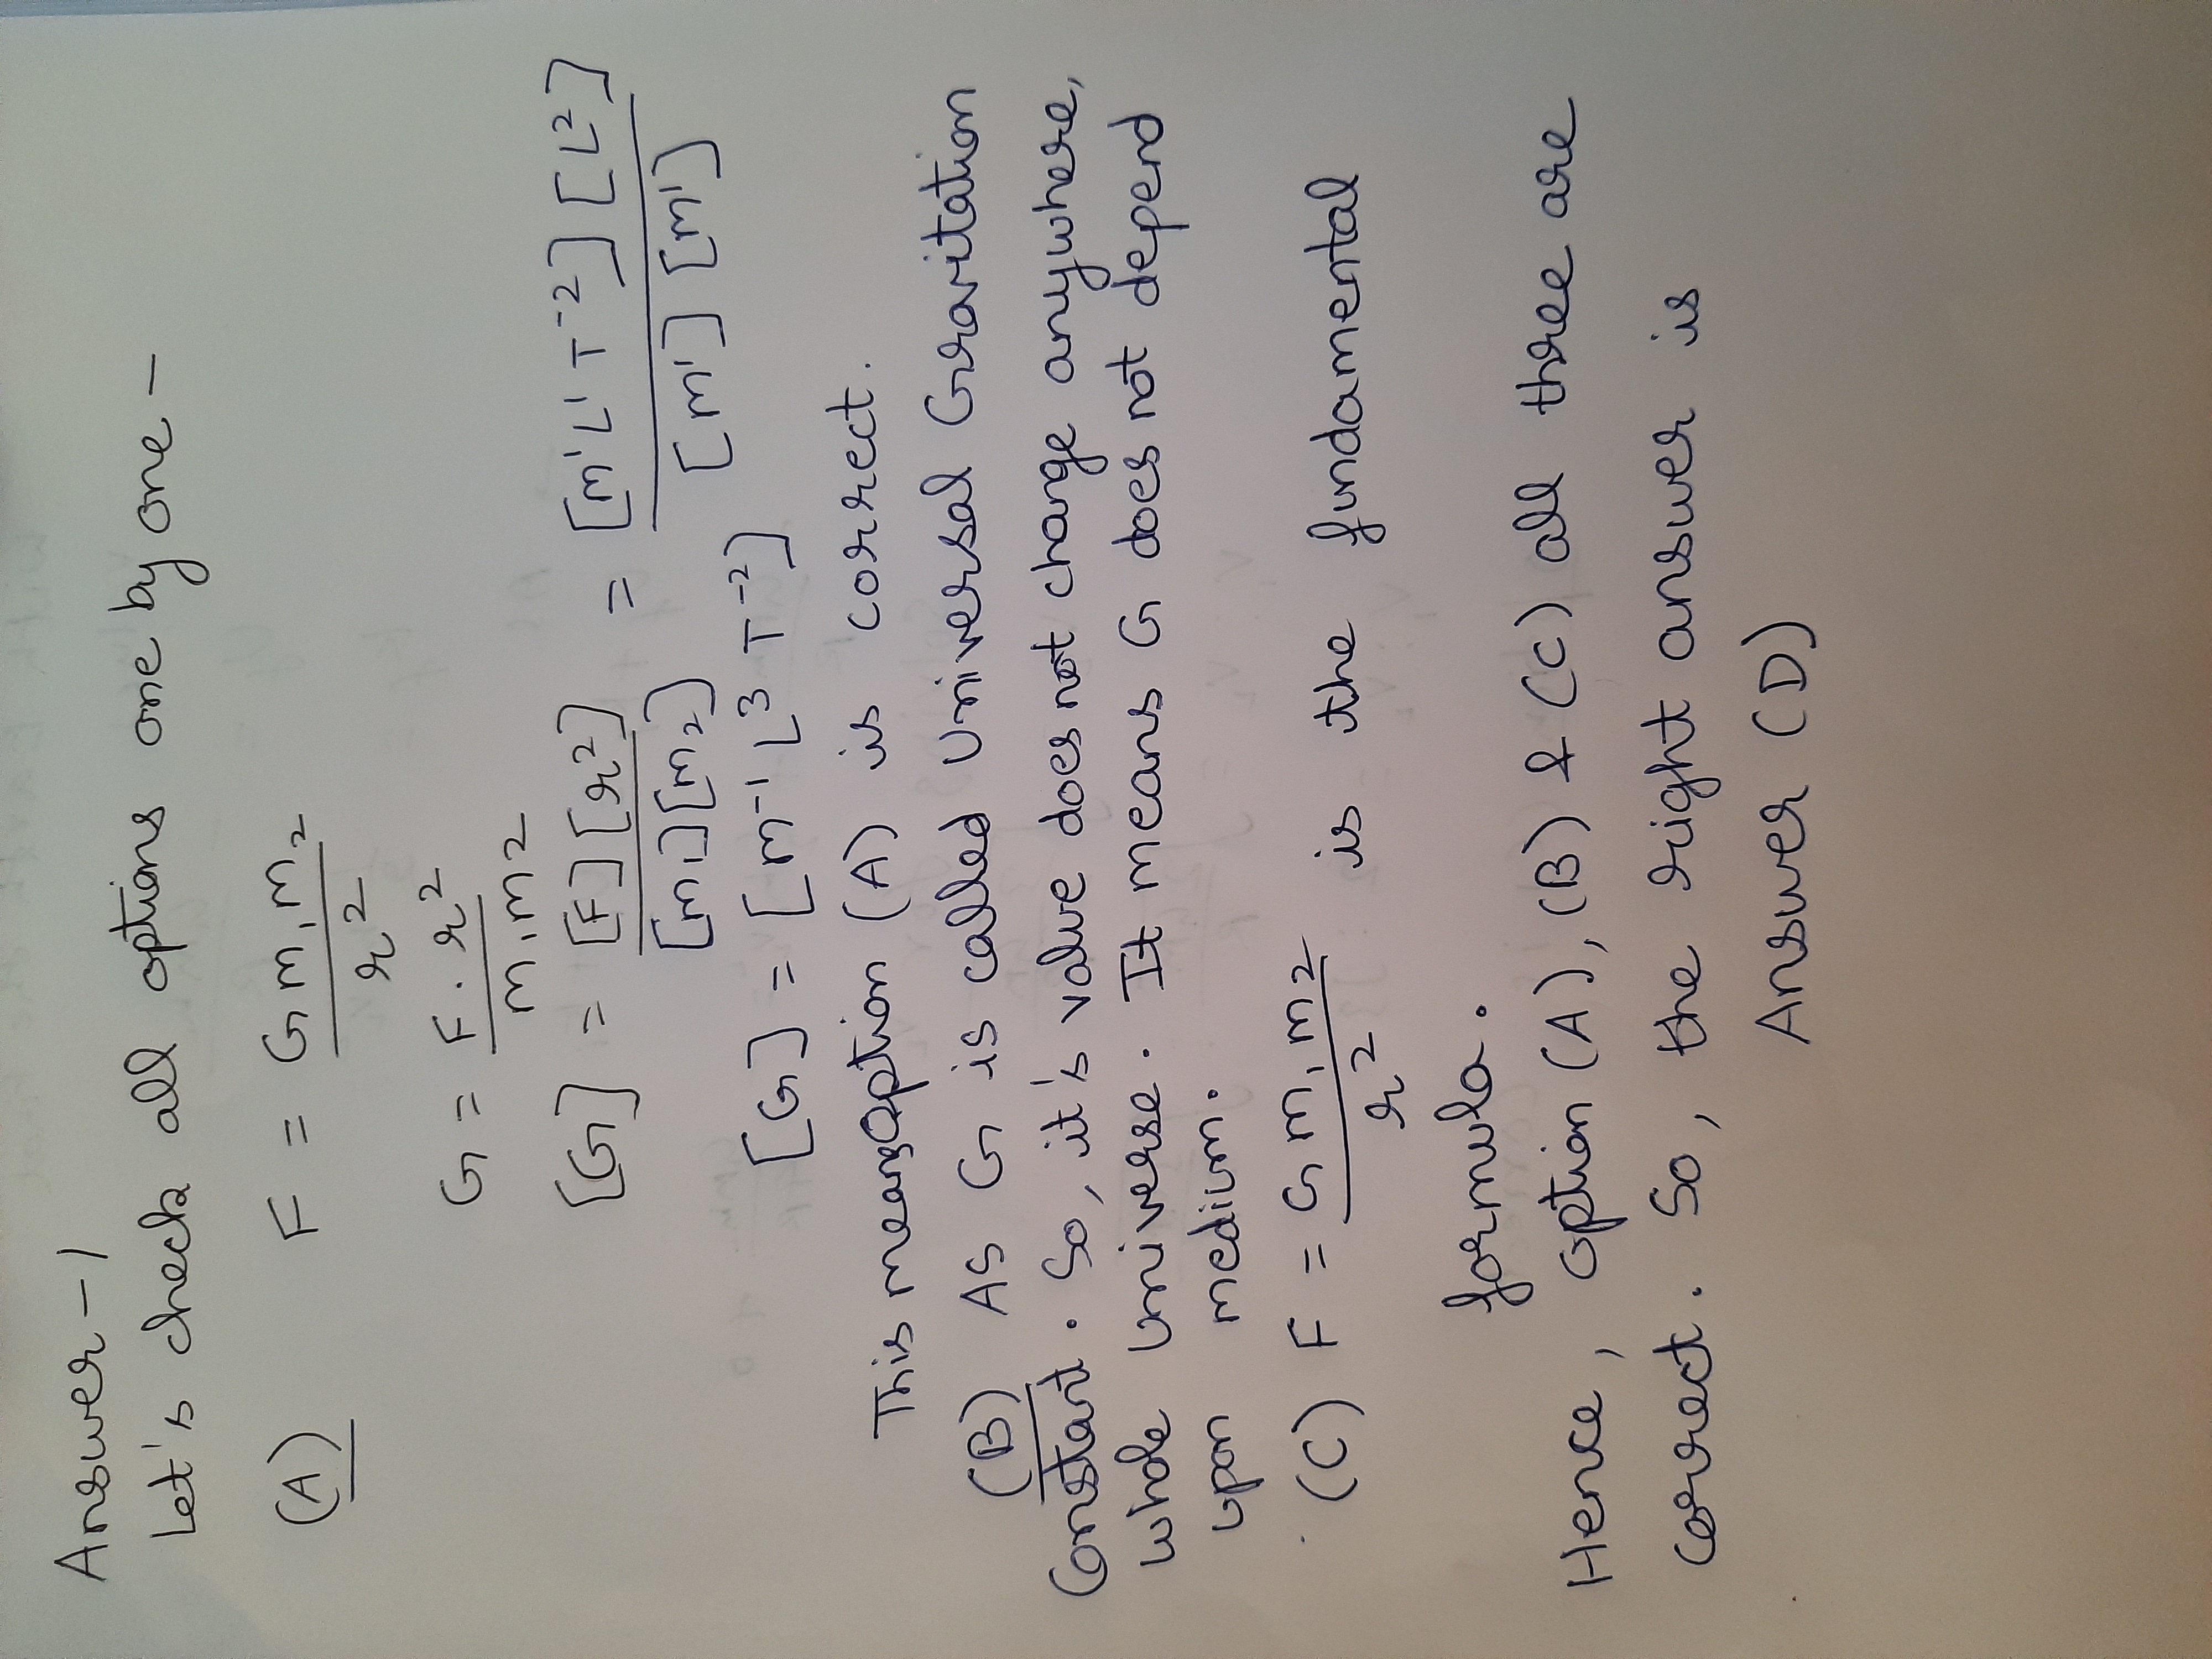 Answer-1
Let's check all options one by one -
(A) F = G m₁m₂ / r²
G = F. r² / m₁m2
[G] = [F][r²] / [m₁][m₂] = [m¹L¹T⁻²][L²] / [m¹][m¹]
[G] = [m⁻¹L³T⁻²]
This means option (A) is correct.
(B) As G is called Universal Gravitation
Constant. So, it's value does not change anywhere,
whole universe. It means G does not depend
upon medium.
(C) F = G m₁m₂ / r² is the fundamental
formula.
Hence, option (A), (B) & (C) all three are
correct. So, the right answer is
Answer (D)